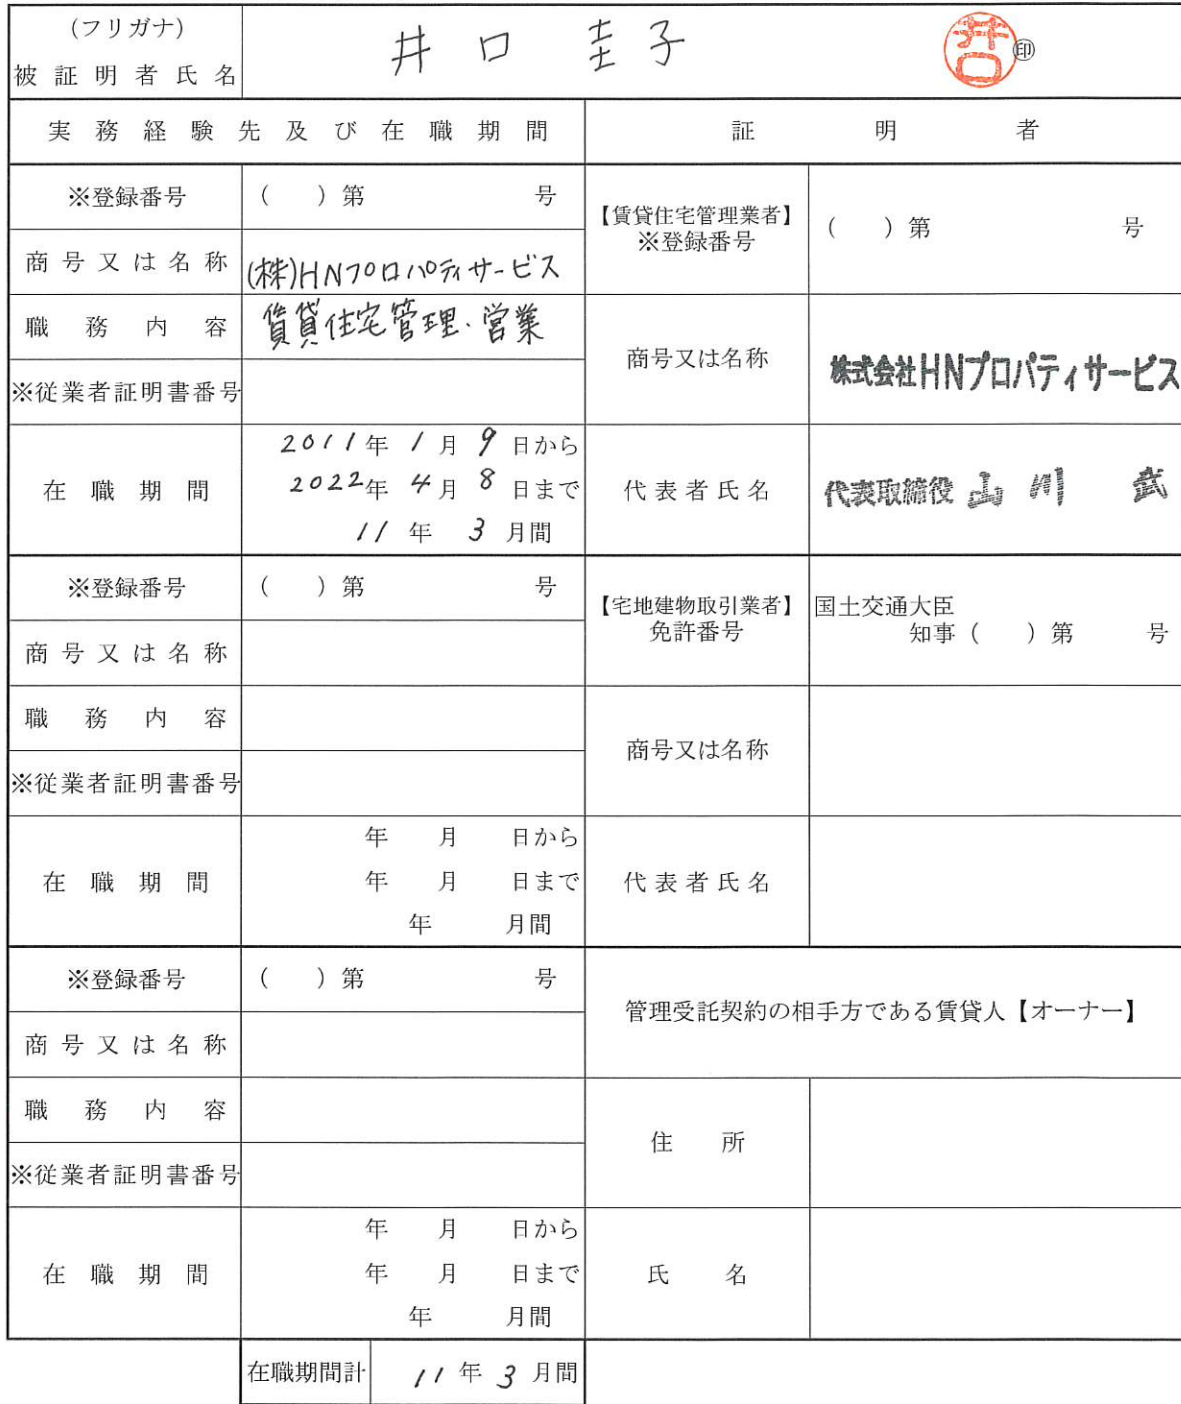 (フリガナ)
被証明者氏名
井口 圭子
井口
印
実務経験先及び在職期間
証明者
※登録番号
( )第 号
【賃貸住宅管理業者】
※登録番号
( )第 号
商号又は名称
(株)HNプロパティサービス
職務内容
賃貸住宅管理・営業
商号又は名称
株式会社HNプロパティサービス
※従業者証明書番号
在職期間
2011年 1月 9日から
2022年 4月 8日まで
11年 3月間
代表者氏名
代表取締役 山川 武
※登録番号
( )第 号
【宅地建物取引業者】
免許番号
国土交通大臣
知事( )第 号
商号又は名称
職務内容
商号又は名称
※従業者証明書番号
在職期間
年 月 日から
年 月 日まで
年 月間
代表者氏名
※登録番号
( )第 号
管理受託契約の相手方である賃貸人【オーナー】
商号又は名称
職務内容
住所
※従業者証明書番号
在職期間
年 月 日から
年 月 日まで
年 月間
氏名
在職期間計
11年 3月間